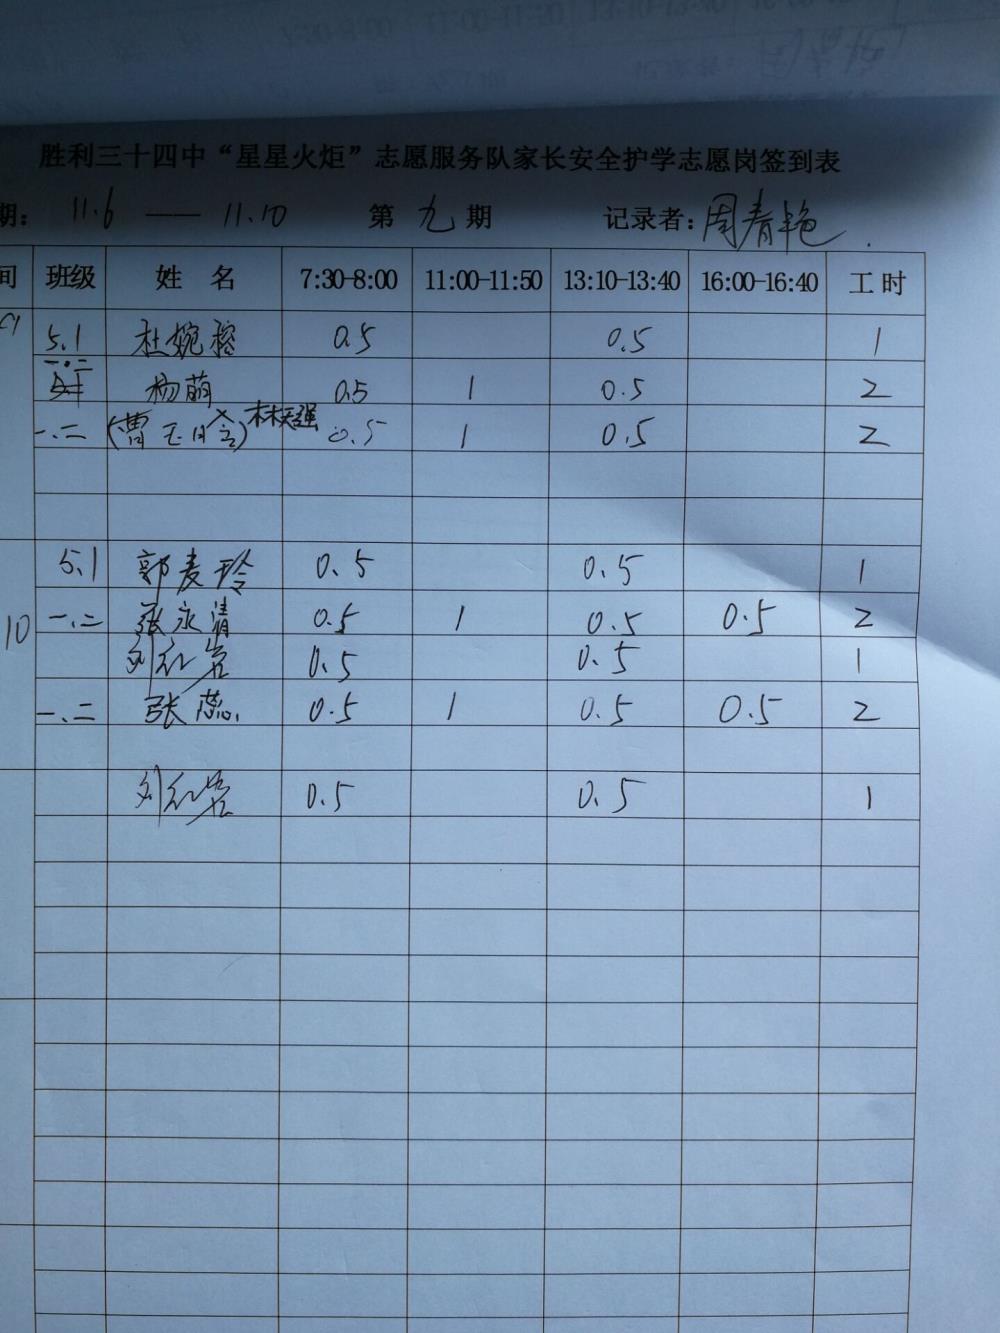 胜利三十四中“星星火炬”志愿服务队家长安全护学志愿岗签到表
期: 11.6 —— 11.10 第 九 期 记录者: 周春艳
间 班级 姓 名 7:30-8:00 11:00-11:50 13:10-13:40 16:00-16:40 工时
5.1 杜婉 0.5 0.5 1
一.二 杨萌 0.5 1 0.5 2
一.二 (曹玉晗) 林天强 0.5 1 0.5 2
5.1 郭麦玲 0.5 0.5 1
10 一.二 张永清 0.5 1 0.5 0.5 2
刘红岩 0.5 0.5 1
一.二 张蕊 0.5 1 0.5 0.5 2
刘红岩 0.5 0.5 1